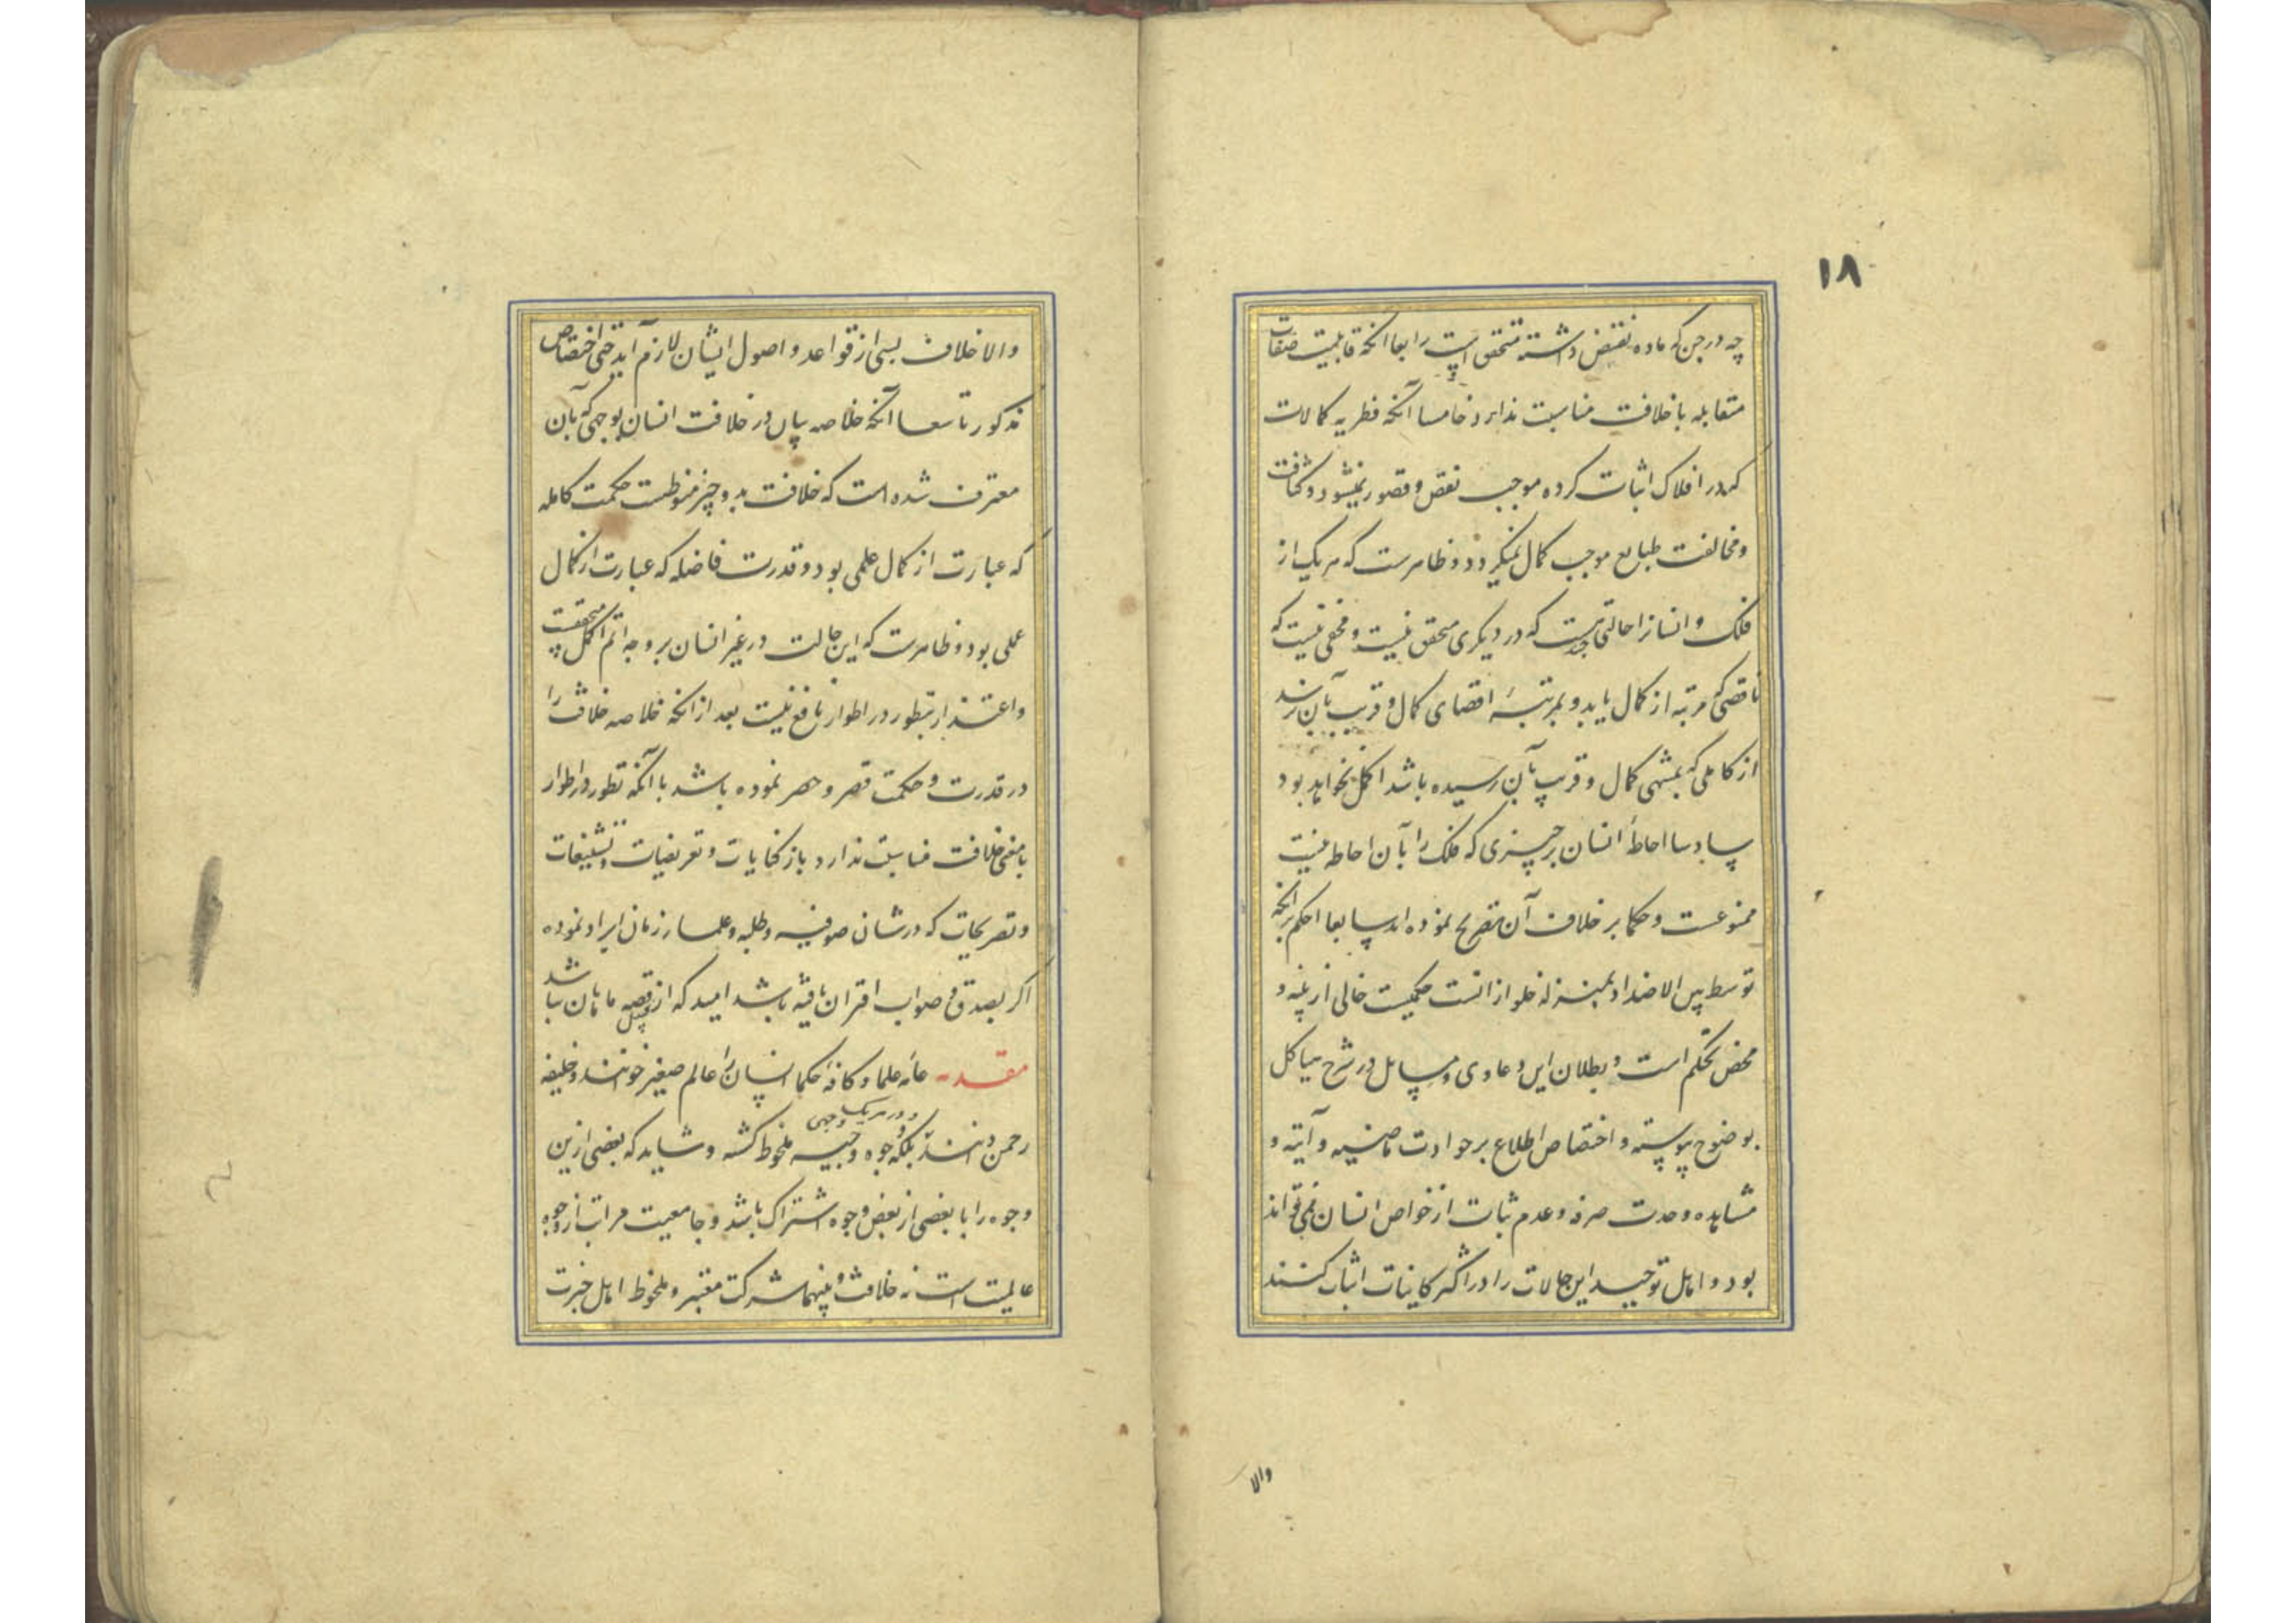 ۱۸
چه در جن که ماده نقیض داشته متحقق است رابعا انکه قابلیت صفات
متقابله با خلافت مناسبت ندارد خامسا آنکه فطریه کمالات
که در افلاک اثبات کرده موجب نقص و قصور نمیشود و کثافت
و مخالفت طبایع موجب کمال نمیکردد و ظاهرست که هر یک از
فلک و انسانرا حالتی هست که در دیکری متحقق نیست و مخفی نیست که
ناقصی که مرتبه از کمال یابد و بمرتبهٔ اقصای کمال و قریب بآن نرسد
از کاملی که بمنتهی کمال و قریب بآن رسیده باشد اکمل نخواهد بود
سادسا احاطهٔ انسان بر چیزی که فلک را بآن احاطه نیست
ممنوعست و حکما بر خلاف آن تصریح نموده اند سابعا حکم برانکه
توسط بین الاضداد بمنزله خلو ازانست حکمیست خالی از بینه و
محض تحکم است و بطلان این دعاوی و مسایل در شرح هیاکل
بوضوح پیوسته و اختصاص اطلاع بر حوادث ماضیه و آتیه و
مشاهده وحدت صرفه و عدم ثبات از خواص انسان نمیتواند
بود و اهل توحید این حالات را در اکثر کاینات اثبات کنند
والا
والا خلاف بسی از قواعد و اصول ایشان لازم آید حتی اختصاص
مذکور تاسعا آنکه خلاصه بیان در خلافت انسان بوجهی که بآن
معترف شده است که خلافت بدو چیز منوطست حکمت کامله
که عبارت از کمال علمی بود و قدرت فاضله که عبارت از کمال
عملی بود و ظاهرست که این حالت در غیر انسان بر وجه اتم اکمل متحققست
و اعتذار بتطور در اطوار نافع نیست بعد از انکه خلاصه خلافت را
در قدرت و حکمت قصر و حصر نموده باشد با آنکه تطور در اطوار
با معنی خلافت مناسبت ندارد باز کنایات و تعریضات و تشنیعات
و تصریحات که در شان صوفیه و طلبه و علماء زمان ایراد نموده
اکر بصدق و صواب اقتران یافته باشد امید که از قبیل قصه هامان نباشد
مقدمه عامه علما و کافه حکما انسان را عالم صغیر خوانند و خلیفه
رحمن دانند بلکه وجوه وجیه ملحوظ کشته و شاید که بعضی ازین
و در هر یک وجهی
وجوه را با بعضی از بعض وجوه اشتراک باشد و جامعیت مراتب از وجوه
عالمیت است نه خلافت و بینهما شرکت معتبر و ملحوظ اهل خبرت